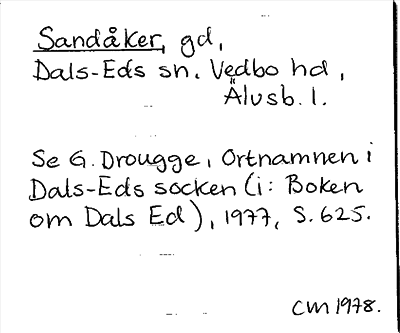 Sandåker, gd,
Dals-Eds sn. Vedbo hd,
Älvsb. l.
Se G. Drougge, Ortnamnen i
Dals-Eds socken (i: Boken
om Dals Ed), 1977, S. 625.
CM 1978.